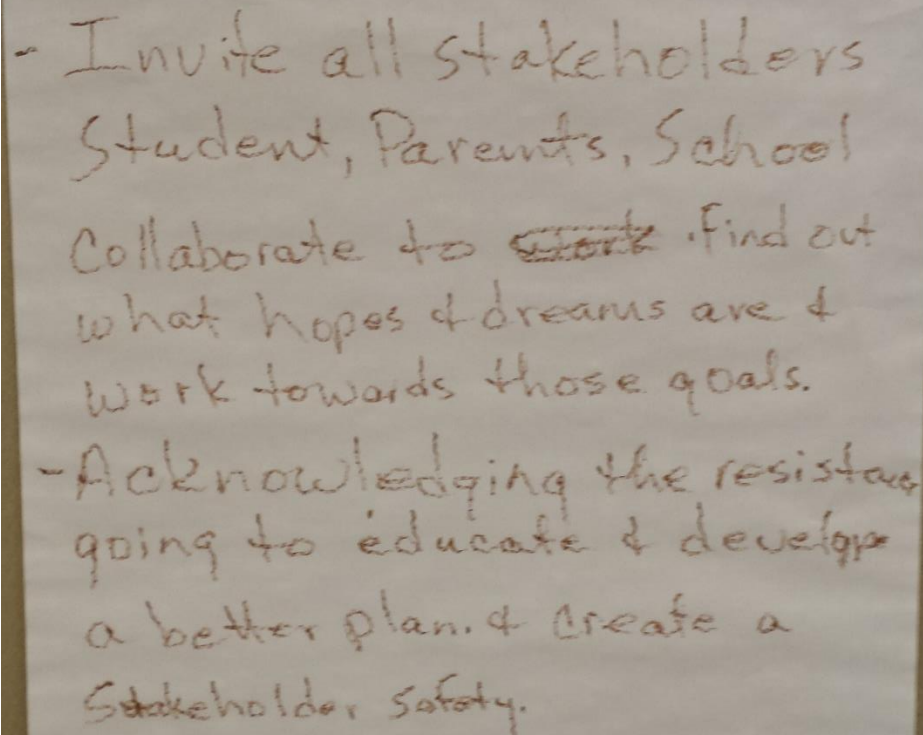 - Invite all stakeholders
Student, Parents, School
Collaborate to find out
what hopes & dreams are &
work towards those goals.
- Acknowledging the resistance
going to educate & develop
a better plan. & create a
Stakeholder safety.